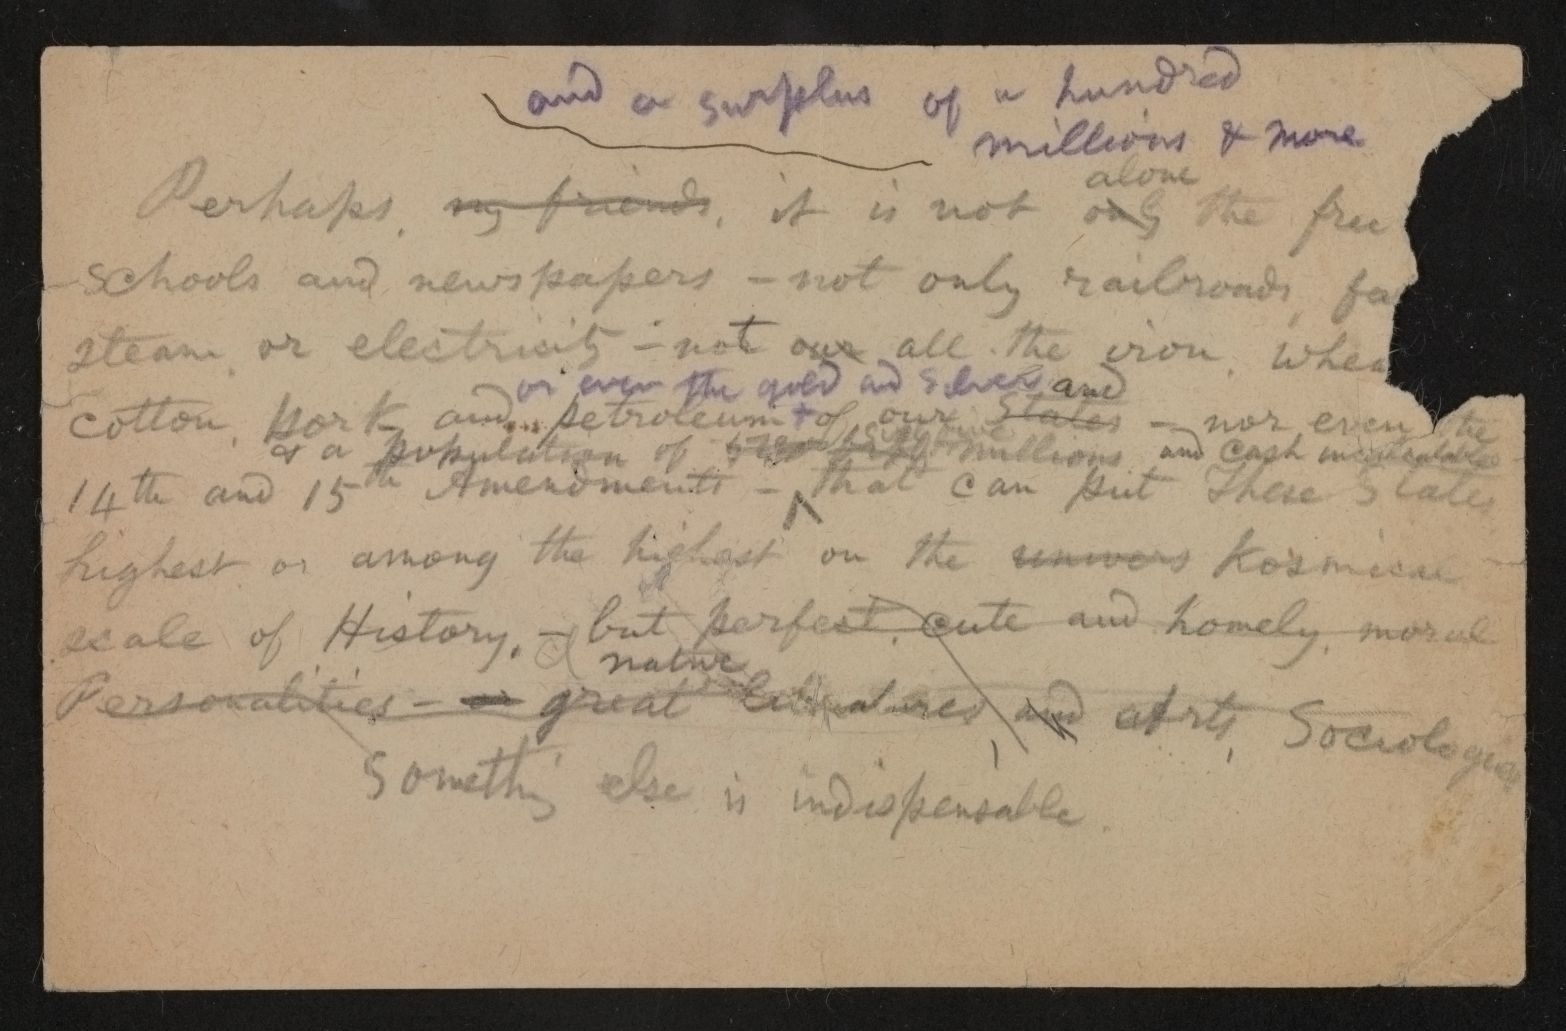 and a surplus of a hundred
millions & more
alone
Perhaps, my friends, it is not only the free
schools and newspapers – not only railroads, fa
steam, or electricity – not our all the iron, whea
or even the gold and Silver and
cotton, pork, and petroleum + of our States – nor even the
& a population of millions and cash incalculable
14th and 15th Amendments – that can put These States
highest or among the highest on the univers Kosmical
scale of History, – but perfect, cute and homely, moral
native
Personalities – great literatures, and arts, Sociologies
Somethig else is indispensable.